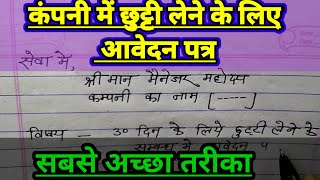 कंपनी में छुट्टी लेने के लिए
आवेदन पत्र
सेवा में,
श्री मान मैनेजर महोदय
कम्पनी का नाम [----]
विषय - ३० दिन के लिये छुट्टी लेने के
सम्बन्ध में आवेदन प
सबसे अच्छा तरीका